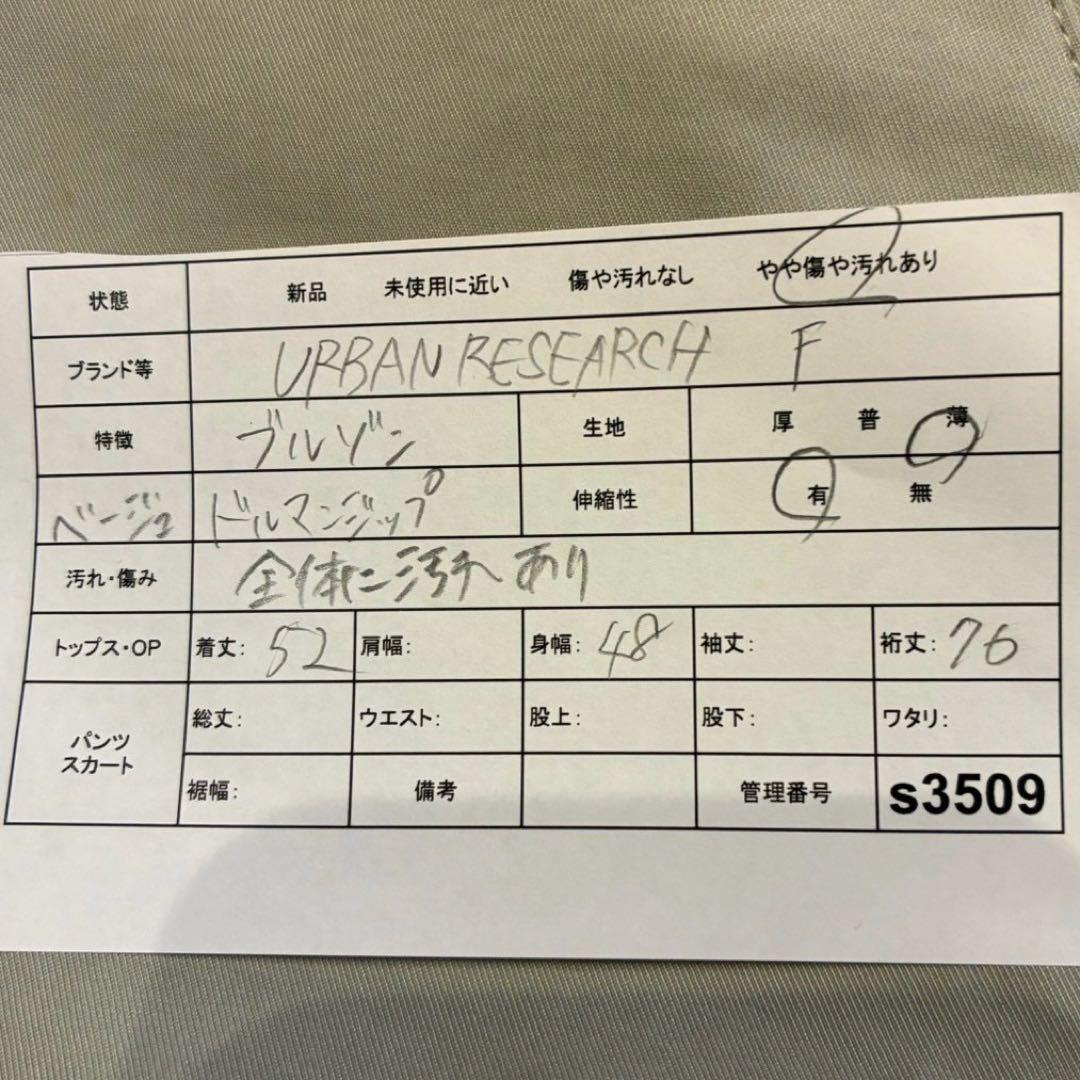 状態 新品 未使用に近い 傷や汚れなし やや傷や汚れあり
ブランド等 URBAN RESEARCH F
特徴 ブルゾン 生地 厚 普 薄
ベージュ ドルマンジップ 伸縮性 有 無
汚れ・傷み 全体に汚れあり
トップス・OP 着丈: 52 肩幅: 身幅: 48 袖丈: 裄丈: 76
パンツ スカート 総丈: ウエスト: 股上: 股下: ワタリ:
裾幅: 備考 管理番号 s3509